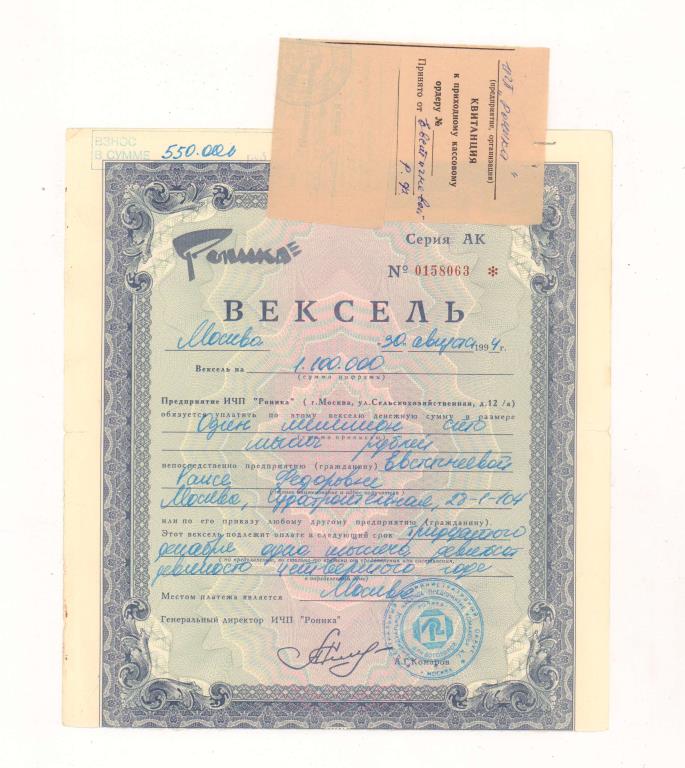 ИЧП "Роника"
(предприятие, организация)
КВИТАНЦИЯ
к приходному кассовому
ордеру №
Принято от Евстигневой
Р. Ф.
ВЗНОС
В СУММЕ 550.000
Роника
Серия АК
№ 0158063 *
ВЕКСЕЛЬ
Москва 30 августа 1994 г.
Вексель на 1.100.000
(сумма цифрами)
Предприятие ИЧП "Роника" ( г.Москва, ул.Сельскохозяйственная, д.12 /а)
обязуется уплатить по этому векселю денежную сумму в размере
Один миллион сто
тысяч рублей
непосредственно предприятию (гражданину) Евстигневой
Раисе Федоровне
Москва, Судостроительная, 25-1-104
или по его приказу любому другому предприятию (гражданину).
Этот вексель подлежит оплате в следующий срок тридцатого
декабря одна тысяча девятьсот
(по предъявлении, во столько-то времени от предъявления или составления,
девяносто четвертого года
в определенный день)
Местом платежа является Москва
Генеральный директор ИЧП "Роника"
А.Г.Комаров
МОСКВА